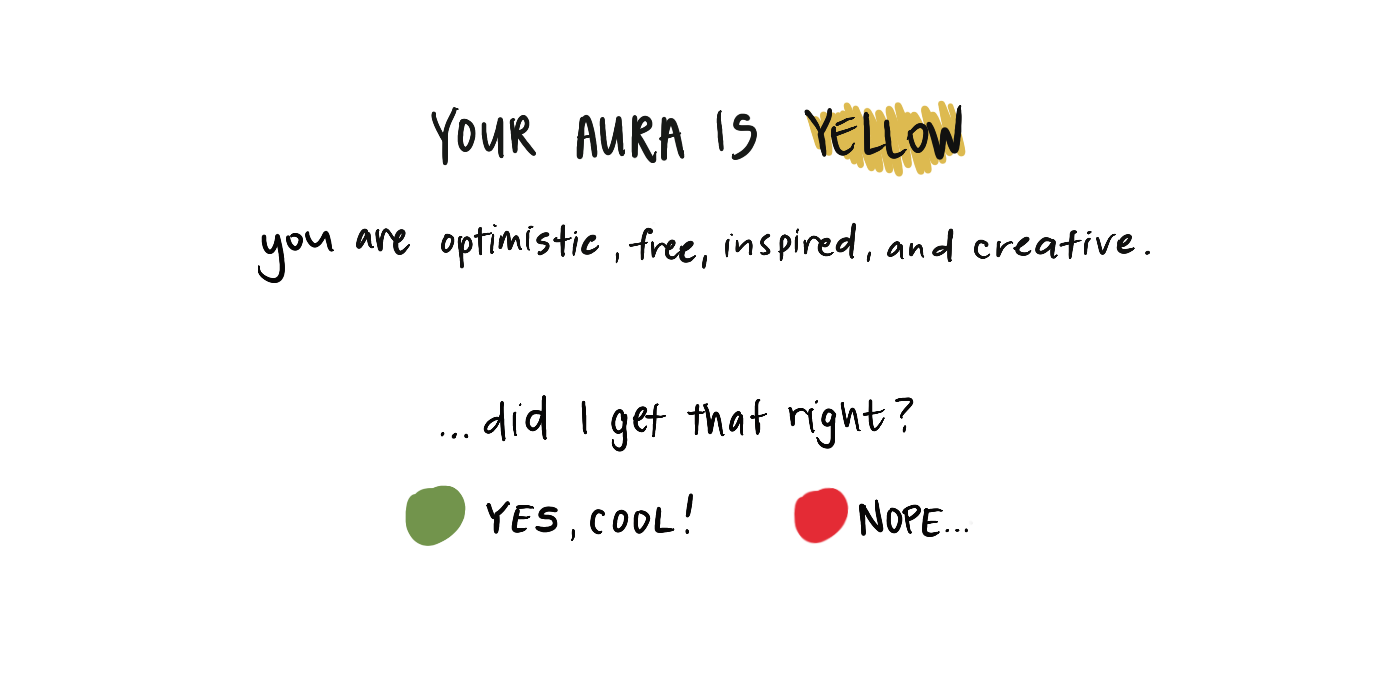 YOUR AURA IS YELLOW
you are optimistic, free, inspired, and creative.
...did I get that right?
YES, COOL! NOPE...